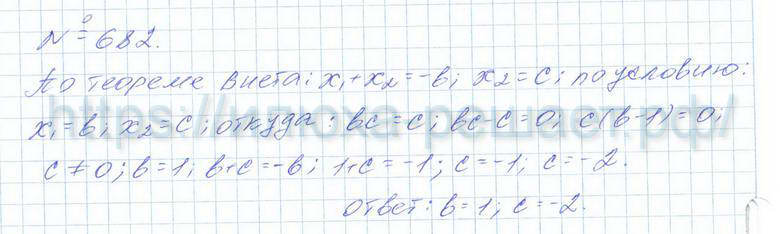 № 682.
По теореме Виета: x₁+x₂=-в; x₂=c; по условию:
x₁=в; x₂=c; откуда: вc=c; вc-c=0; c(в-1)=0;
c≠0; в=1; в+c=-в; 1+c=-1; c=-1; c=-2.
ответ: в=1; c=-2.
https://илюха-решает.рф/